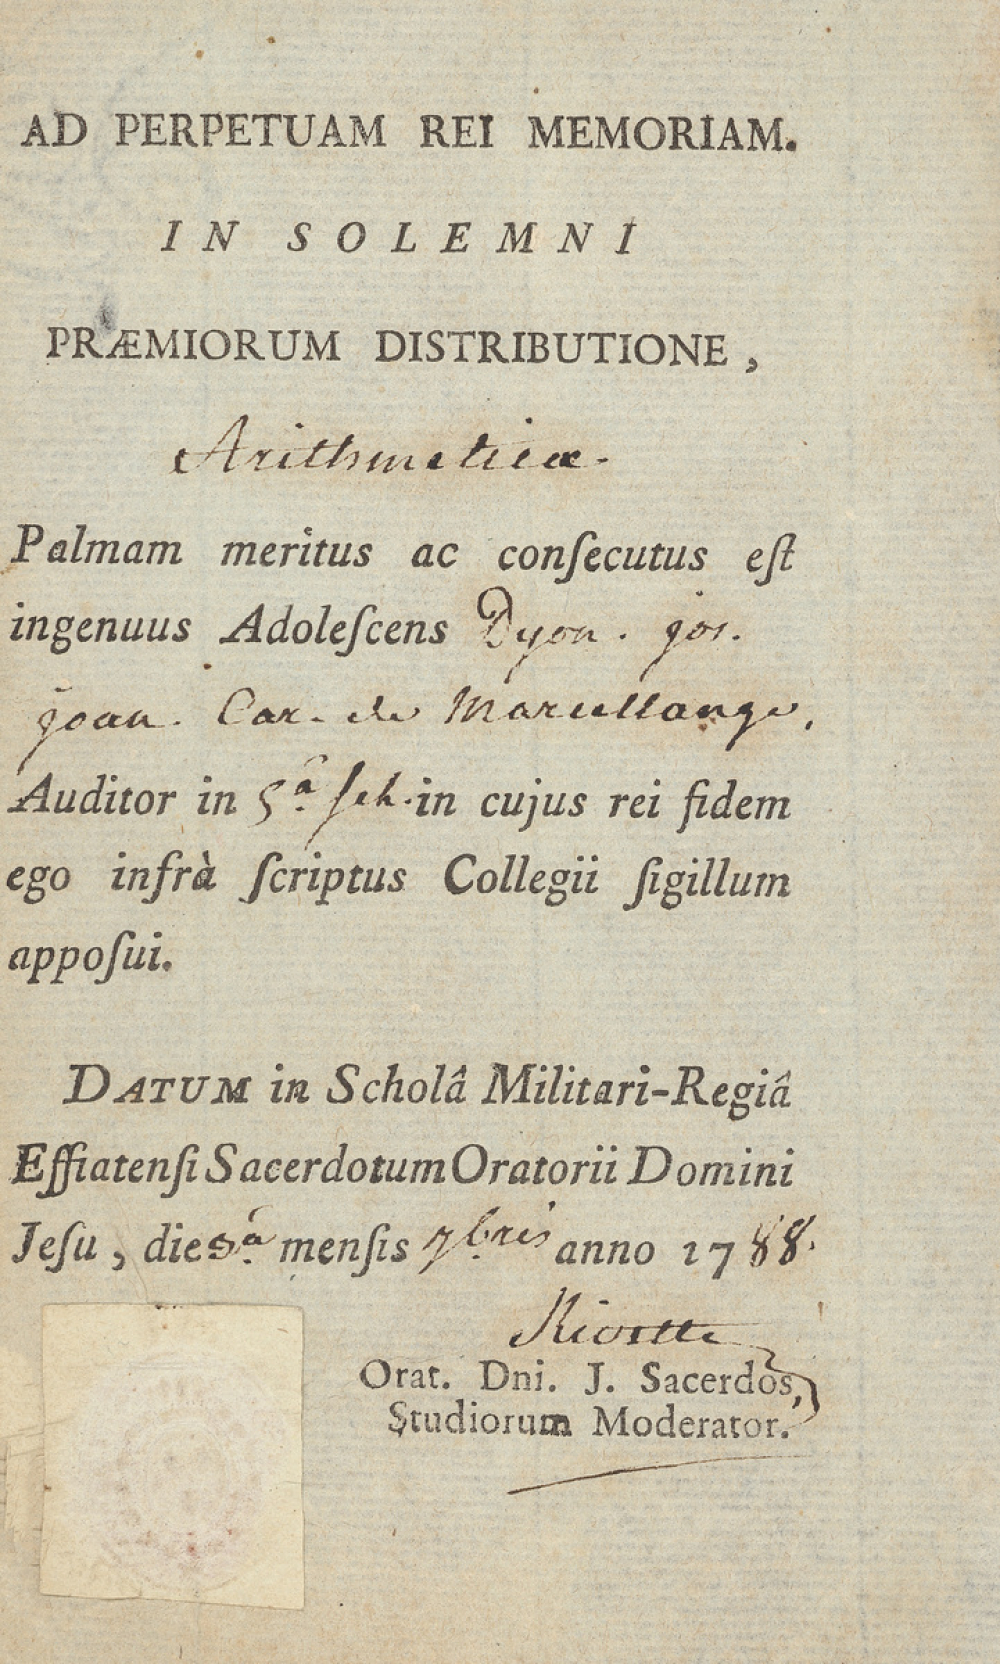 AD PERPETUAM REI MEMORIAM.
IN SOLEMNI
PRÆMIORUM DISTRIBUTIONE,
Arithmeticæ.
Palmam meritus ac conſecutus eſt
ingenuus Adoleſcens Dyon. jos.
joan. Car. de Marcellange,
Auditor in 5ᵃ. ſch. in cujus rei fidem
ego infrà ſcriptus Collegii ſigillum
appoſui.
DATUM in Scholâ Militari-Regiâ
Effiatenſi Sacerdotum Oratorii Domini
Jeſu, die 5ᵃ. menſis 7bris anno 1788.
Orat. Dni. J. Sacerdos,
Studiorum Moderator.